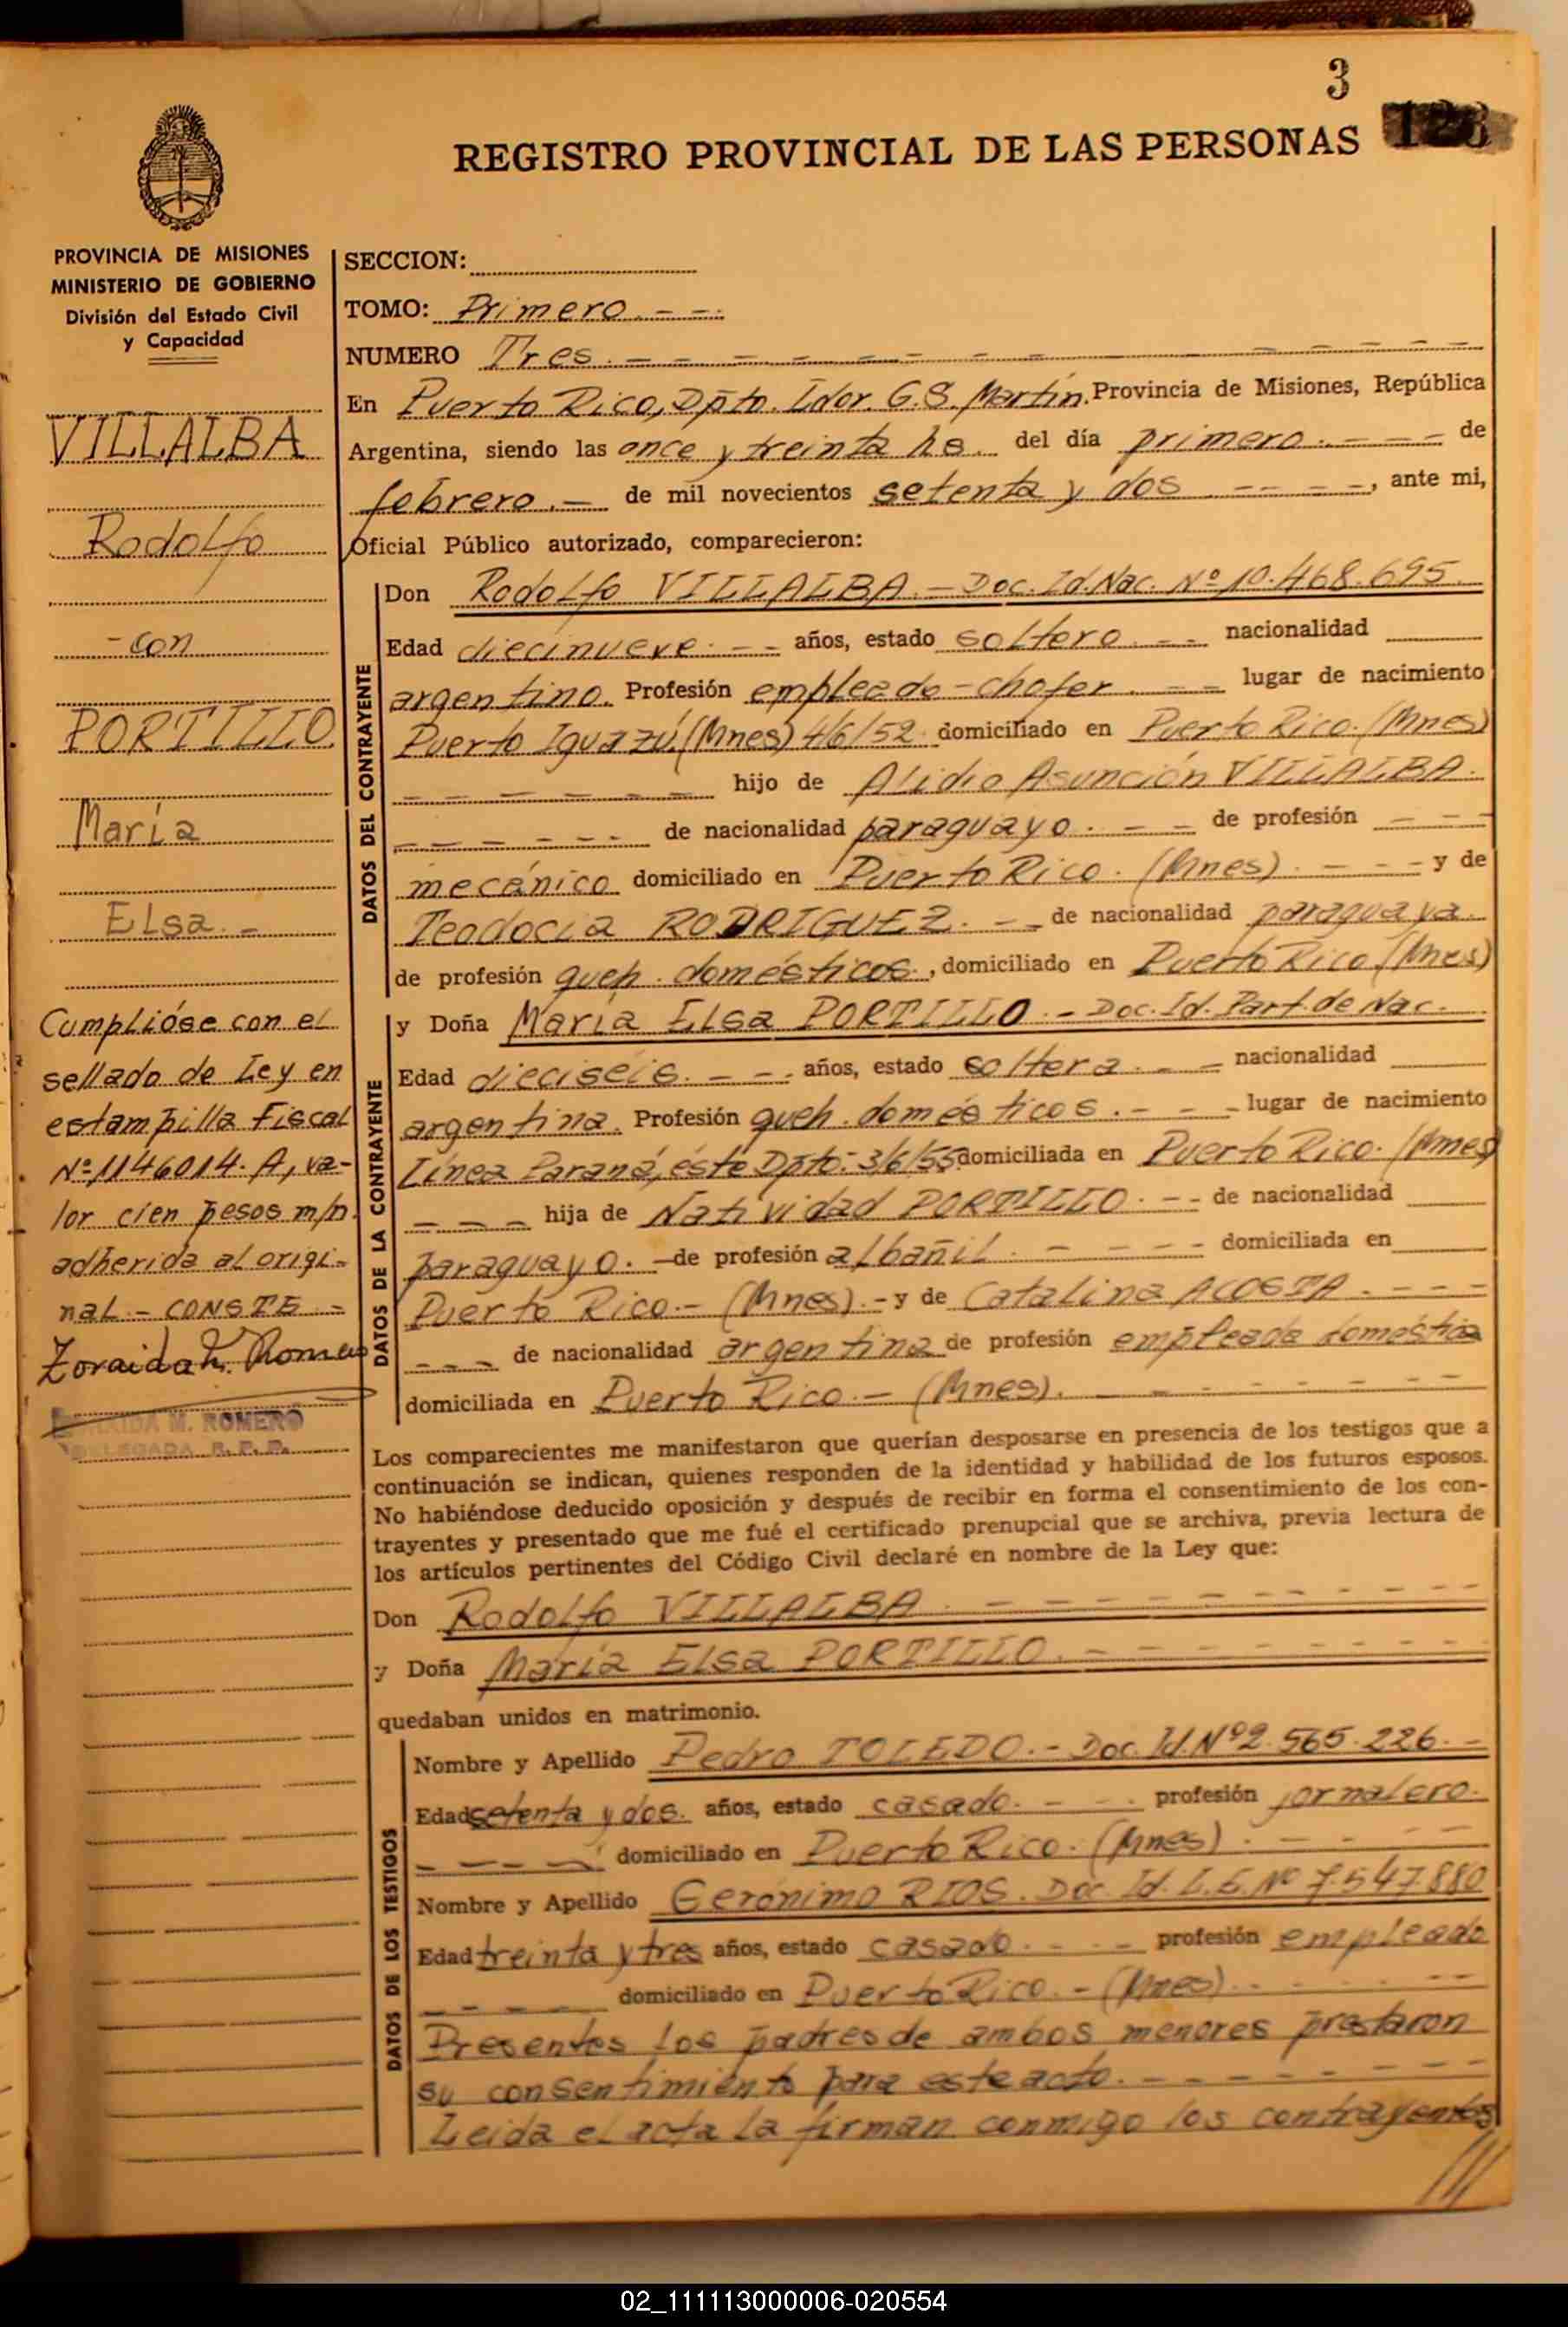 3
128
REGISTRO PROVINCIAL DE LAS PERSONAS
PROVINCIA DE MISIONES
MINISTERIO DE GOBIERNO
División del Estado Civil
y Capacidad
VILLALBA
Rodolfo
- con
PORTILLO
María
ELsa. -
Cumplióse con el
sellado de Ley en
estampilla Fiscal
Nº 1146014. A, va-
lor cien pesos m/n.
adherida al origi-
nal. - CONSTE -
Zoraida M. Romero
ZORAIDA M. ROMERO
DELEGADA R. P. P.
SECCION:
TOMO: Primero. - -.
NUMERO Tres. - - - - - - - - - - - - -
En Puerto Rico, Dpto. Ldor. G. S. Martín. Provincia de Misiones, República
Argentina, siendo las once y treinta hs. del día primero. - - - de
febrero. - de mil novecientos setenta y dos - - - - -, ante mi,
Oficial Público autorizado, comparecieron:
DATOS DEL CONTRAYENTE
Don Rodolfo VILLALBA. - Doc. Id. Nac. Nº 10.468.695.
Edad diecinueve. - - años, estado soltero. - - nacionalidad
argentino. Profesión empleado - chofer. - - lugar de nacimiento
Puerto Iguazú, (Mnes) 4/6/52. domiciliado en Puerto Rico. (Mnes)
- - - - - - hijo de Alidio Asunción VILLALBA.
- - - - - - de nacionalidad paraguayo. - - de profesión - - -
mecánico domiciliado en Puerto Rico. (Mnes). - - - y de
Teodocia RODRIGUEZ. - - de nacionalidad paraguaya.
de profesión queh. domésticos., domiciliado en Puerto Rico (Mnes)
DATOS DE LA CONTRAYENTE
y Doña María ELsa PORTILLO. - Doc. Id. Part. de Nac.
Edad dieciséis. - -. años, estado soltera. - - nacionalidad
argentina. Profesión queh. domésticos. - - - lugar de nacimiento
Línea Paraná, éste Dpto. - 3/6/55 domiciliada en Puerto Rico. (Mnes)
- - - hija de Natividad PORTILLO. - - de nacionalidad
paraguayo. - de profesión albañil. - - - - domiciliada en
Puerto Rico. - (Mnes). - y de Catalina ACOSTA. - - -
- - - de nacionalidad argentina de profesión empleada doméstica
domiciliada en Puerto Rico. - (Mnes). - - - - - - -
Los comparecientes me manifestaron que querían desposarse en presencia de los testigos que a
continuación se indican, quienes responden de la identidad y habilidad de los futuros esposos.
No habiéndose deducido oposición y después de recibir en forma el consentimiento de los con-
trayentes y presentado que me fué el certificado prenupcial que se archiva, previa lectura de
los artículos pertinentes del Código Civil declaré en nombre de la Ley que:
Don Rodolfo VILLALBA. - - - - - - - - -
y Doña María ELsa PORTILLO. - - - - - - - -
quedaban unidos en matrimonio.
DATOS DE LOS TESTIGOS
Nombre y Apellido Pedro TOLEDO. - Doc. Id. Nº 2.565.226. -
Edad setenta y dos. años, estado casado. - - -. profesión jornalero.
- - - - domiciliado en Puerto Rico. (Mnes). - - - -
Nombre y Apellido Gerónimo RIOS. Doc. Id. L. E. Nº 7.547.880
Edad treinta y tres años, estado casado. - - - profesión empleado
- - - - domiciliado en Puerto Rico. - (Mnes). - - - - -
Presentes los padres de ambos menores prestaron
su consentimiento para este acto. - - - - - - - -
Leida el acta la firman conmigo los contrayentes
///
02_111113000006-020554